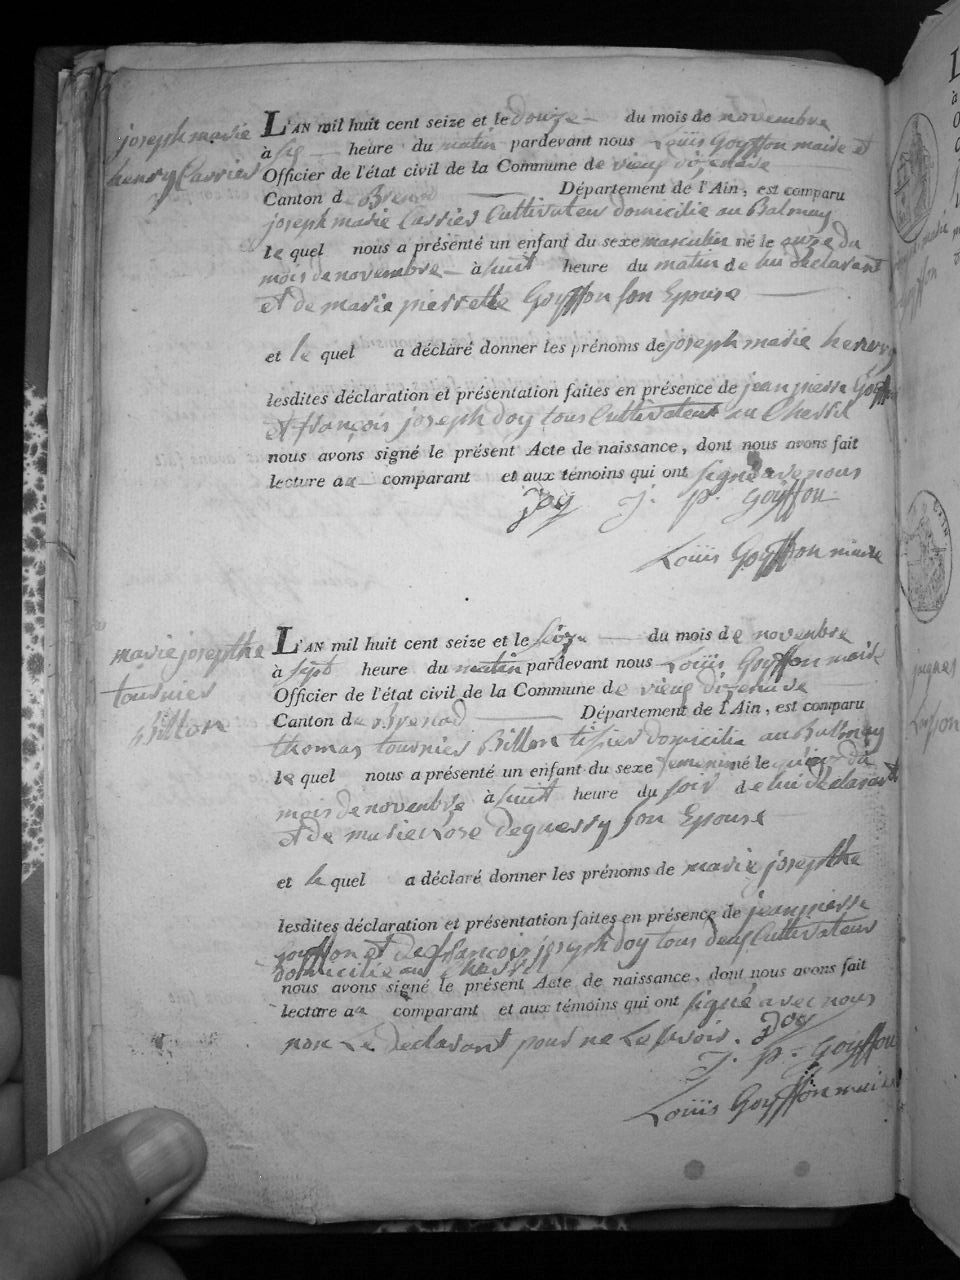 joseph marie
henry Carrier
L'AN mil huit cent seize et le douze du mois de novembre
à six heure du matin pardevant nous Louis Goyffon maire et
Officier de l'état civil de la Commune de vieux dizenave
Canton de Brenod Département de l'Ain, est comparu
joseph marie Carrier Cultivateur domicilié au Balmay
le quel nous a présenté un enfant du sexe masculin né le onze du
mois de novembre à huit heure du matin de lui déclarant
et de marie pierrette Goyffon son Epouse
et le quel a déclaré donner les prénoms de joseph marie henry
lesdites déclaration et présentation faites en présence de jean pierre Goyffon
et françois joseph doy tous Cultivateur au Chessil
nous avons signé le présent Acte de naissance, dont nous avons fait
lecture au comparant et aux témoins qui ont signé avec nous
Doy J. P. Goyffon
Louis Goyffon maire
marie josepthe
tournier
Billon
L'AN mil huit cent seize et le seize du mois de novembre
à sept heure du matin pardevant nous Louis Goyffon maire
Officier de l'état civil de la Commune de vieux dizenave
Canton de Brenod Département de l'Ain, est comparu
thomas tournier Billon tissier domicilié au Balmay
le quel nous a présenté un enfant du sexe feminin né le quinze du
mois de novembre à huit heure du soir de lui déclarant
et de marie Rose deguerry son Epouse
et le quel a déclaré donner les prénoms de marie josepthe
lesdites déclaration et présentation faites en présence de jean pierre
Goyffon et de françois joseph doy tous deux Cultivateur
domicilié au Chessil
nous avons signé le présent Acte de naissance, dont nous avons fait
lecture au comparant et aux témoins qui ont signé avec nous
non Le declarant pour ne Le savoir. Doy
J. P. Goyffon
Louis Goyffon maire